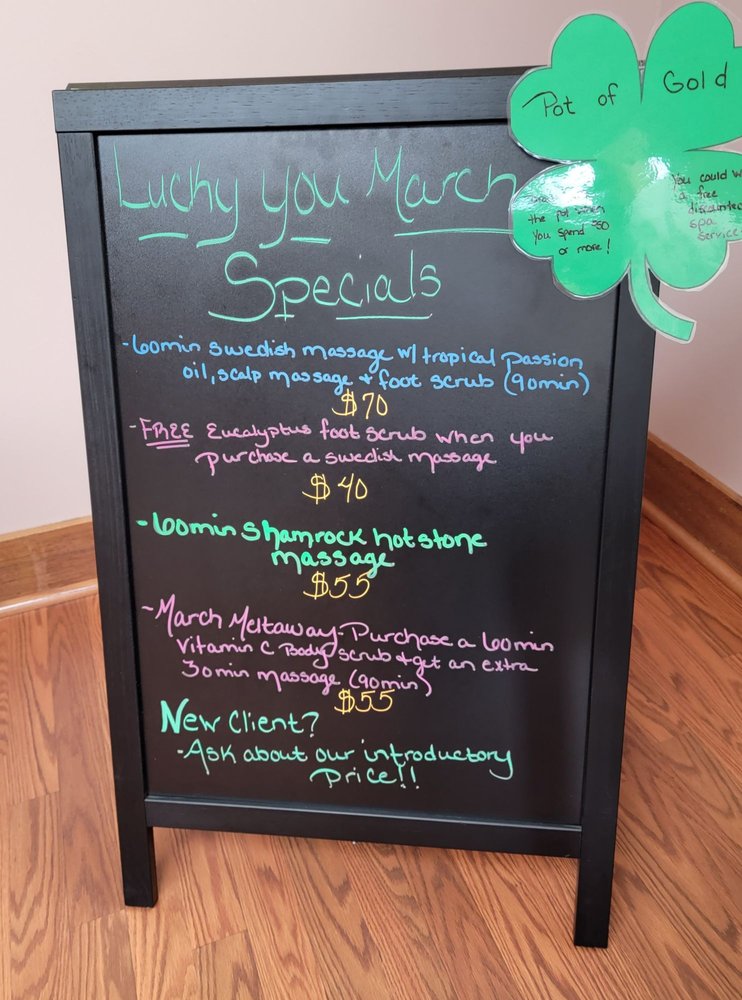 Pot of Gold
the pot when
you spend $50
or more!
You could
a free
discounted
spa
service
Lucky you March
Specials
-60min swedish massage w/ tropical passion
oil, scalp massage + foot scrub (90min)
$70
-FREE Eucalyptus foot scrub when you
purchase a swedish massage
$40
-60min Shamrock hot stone
massage
$55
-March Meltaway-Purchase a 60min
Vitamin C Body scrub + get an extra
30min massage (90min)
$55
New Client?
-Ask about our introductory
price!!